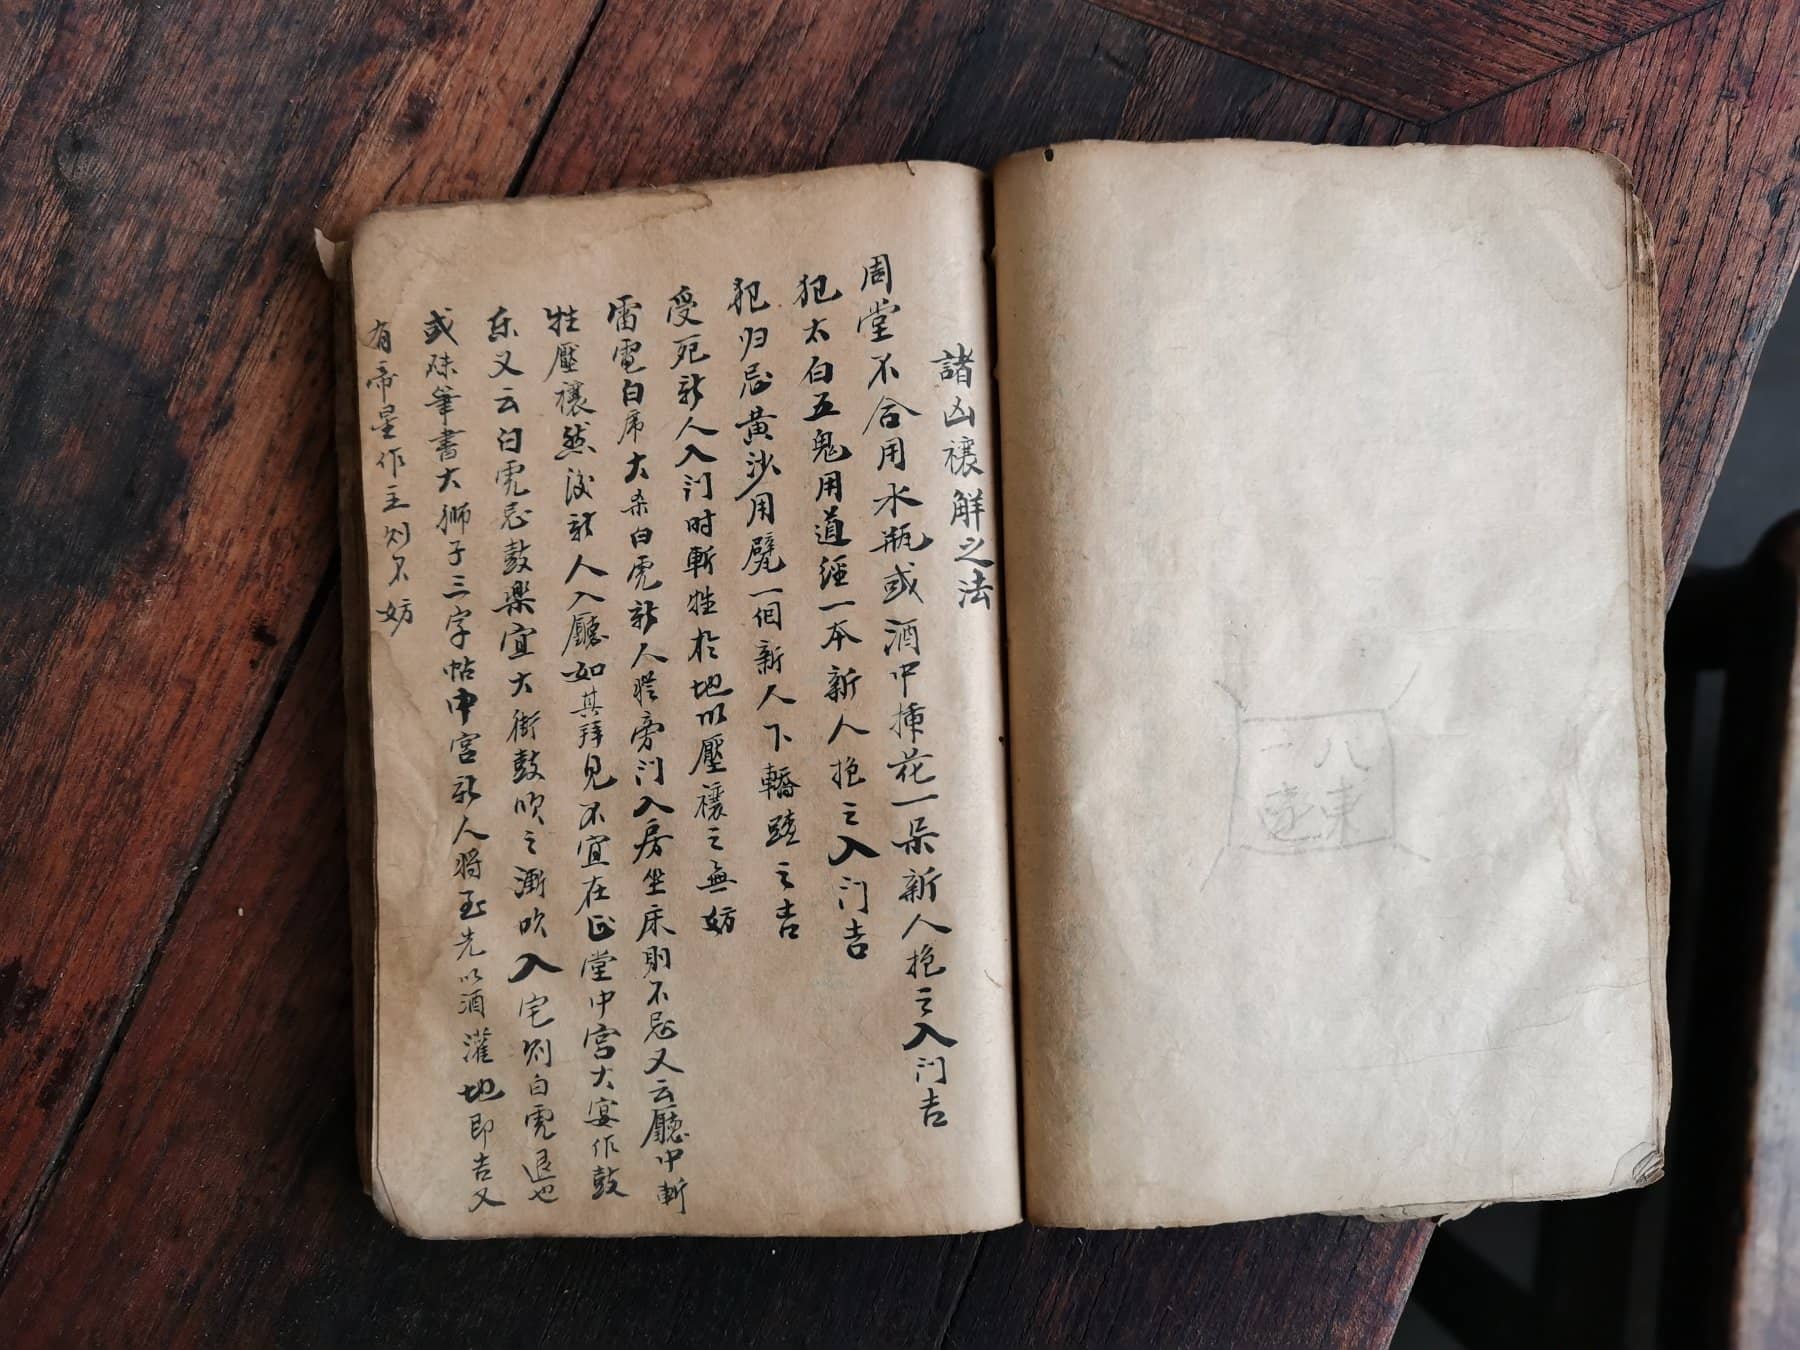 諸凶禳解之法
周堂不合用水瓶或酒中揷花一朵新人抱之入门吉
犯太白五鬼用道經一本新人抱之入门吉
犯归忌黄沙用甓一個新人下轎踏之吉
受死新人入门时斬牲於地以壓禳之無妨
雷霆白虎大杀白虎新人從旁门入房坐床則不忌又云廳中斬
牲壓禳然後新人入廳如其拜見不宜在正堂中宮大宴作鼓
乐又云白虎忌鼓樂宜大街鼓吹之漸吹入宅则白虎退也
或硃筆書大獅子三字帖中宮新人將至先以酒灌地即吉又
有帝星作主则不妨
八東
一